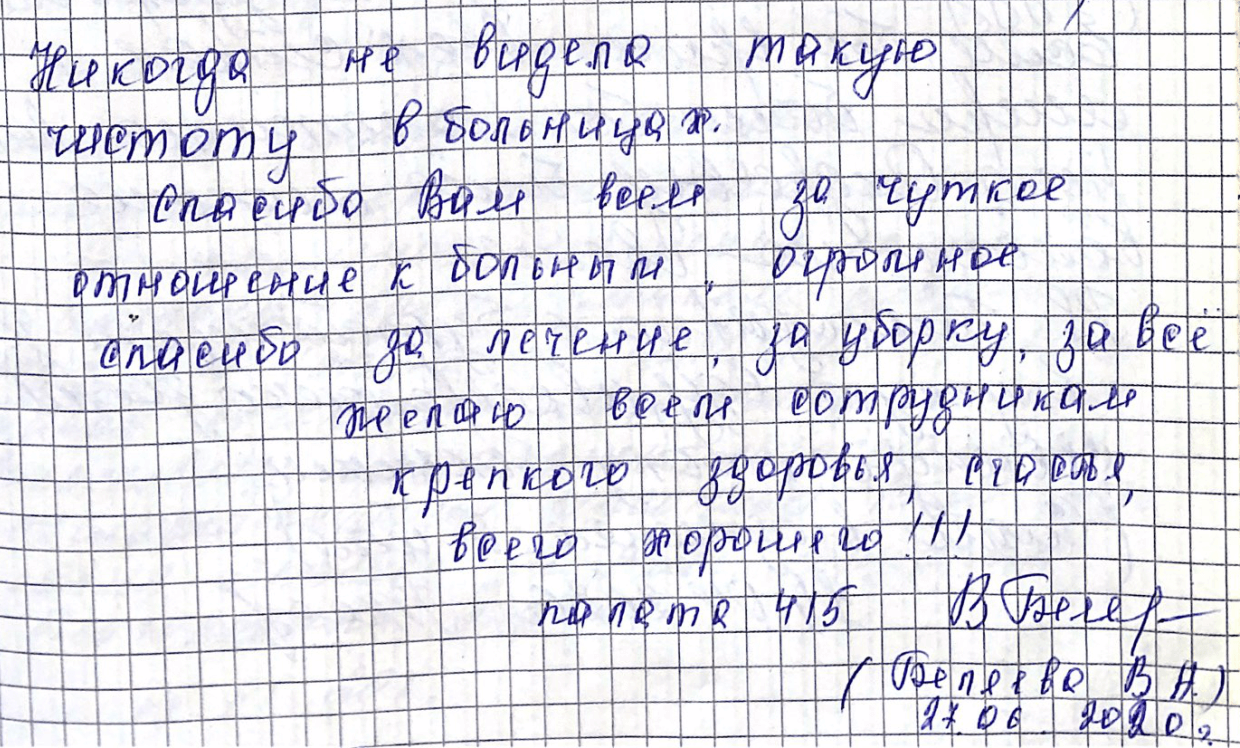 Никогда не видела такую
чистоту в больницах.
Спасибо Вам всем за чуткое
отношение к больным, огромное
спасибо за лечение, за уборку, за всё
желаю всем сотрудникам
крепкого здоровья, счастья,
всего хорошего!!!
палата 415
(Беляева В Н.)
27.06 2020г